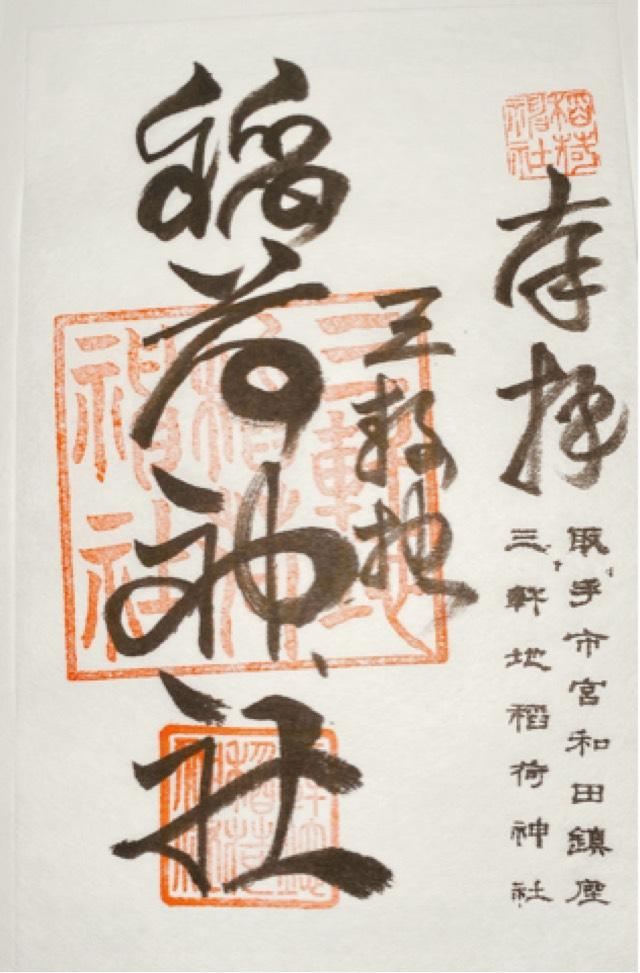 稲荷
神社
奉拝
取手市宮和田鎮座
三軒地稲荷神社
三軒地
稲荷神社
三軒地
稲荷
神社